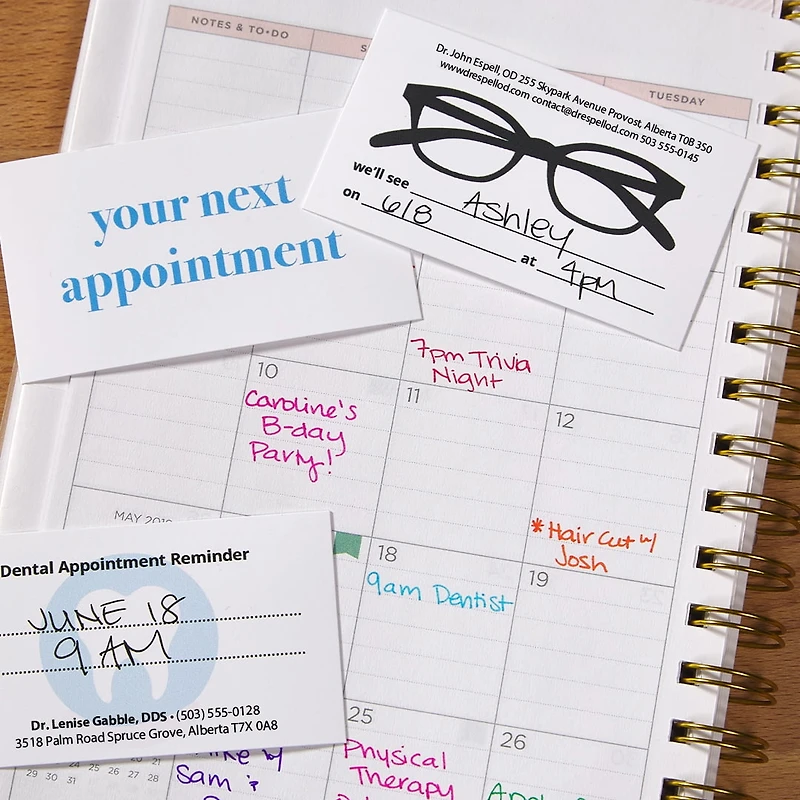 NOTES & TO•DO
TUESDAY
Dr. John Espell, OD 255 Skypark Avenue Provost, Alberta T0B 3S0
www.drespellod.com contact@drespellod.com 503 555-0145
we'll see Ashley
on 6/8 at 4pm
your next
appointment
7pm Trivia
Night
10
Caroline's
B-day
Party!
11
12
*Hair Cut w/
Josh
MAY 2019
Dental Appointment Reminder
JUNE 18
9 AM
Dr. Lenise Gabble, DDS • (503) 555-0128
3518 Palm Road Spruce Grove, Alberta T7X 0A8
18
9am Dentist
19
25
Physical
Therapy
26
w/
Sam
24 25 26 27 28
29 30 31